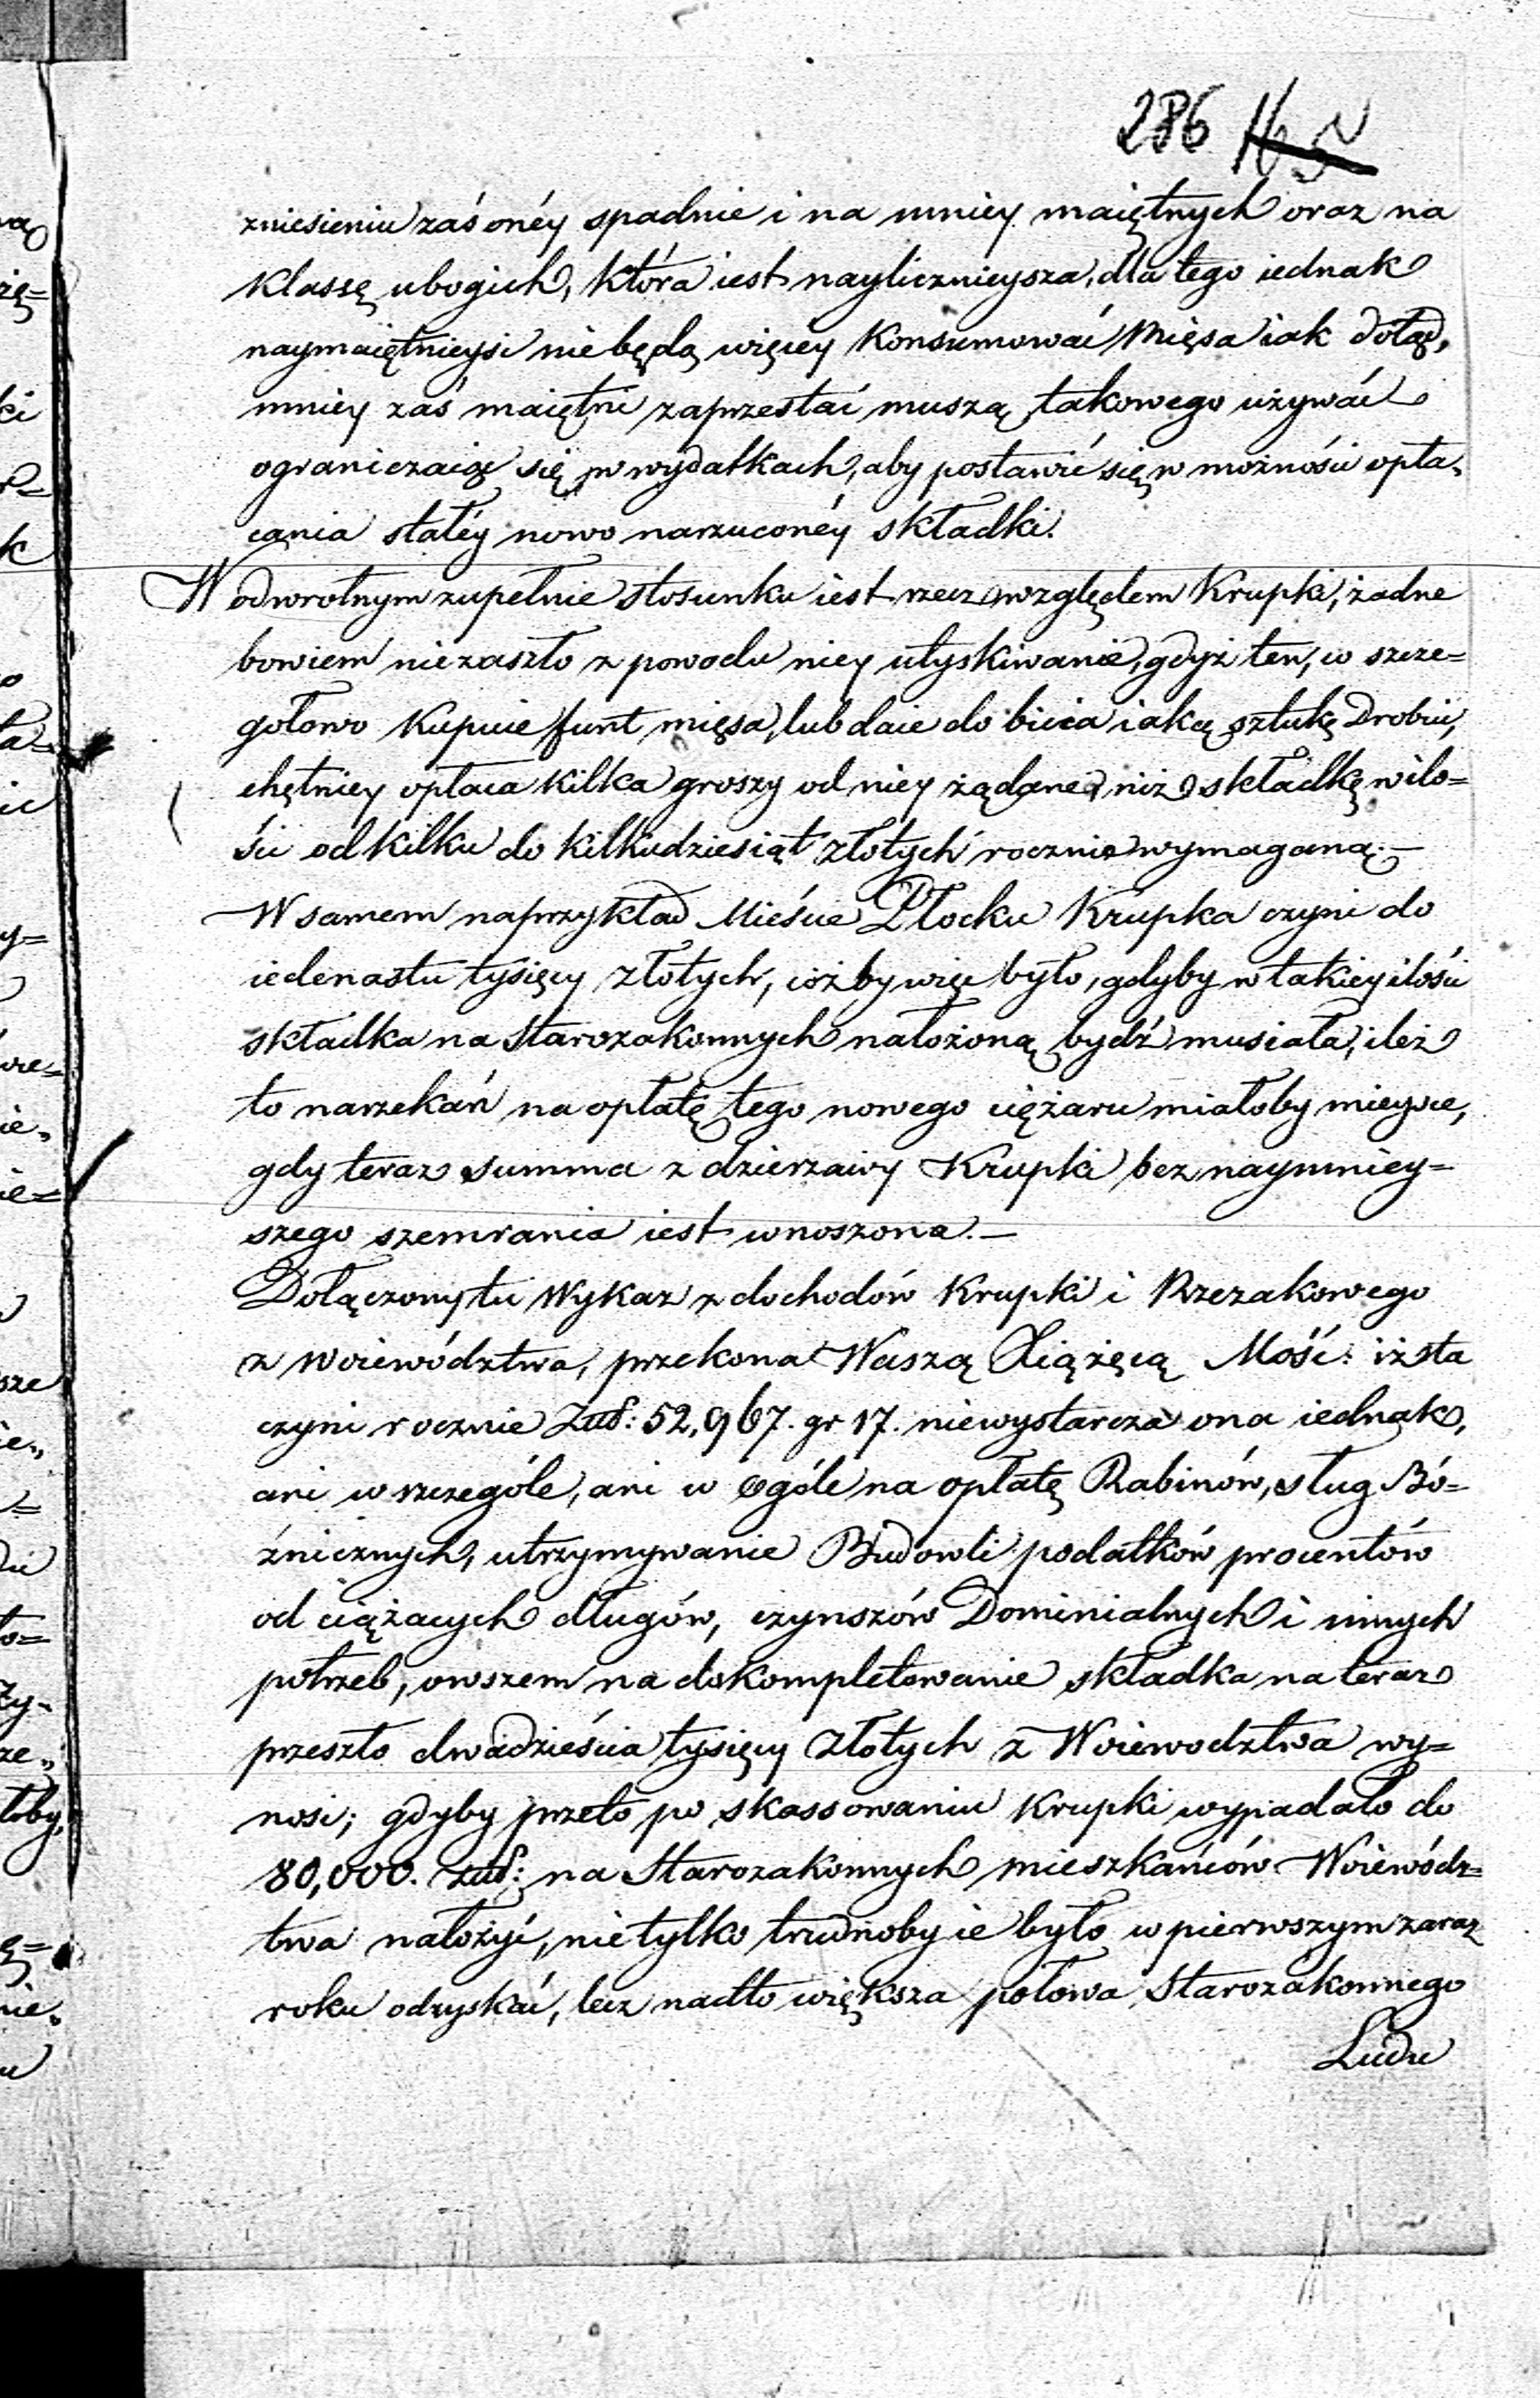 286
zniesieniu zaś onéy spadnie i na mniey maiętnych oraz na
klassę ubogich, która iest naylicznieysza, dla tego iednak
naymaiętnieysi nie będą więcey konsumować Mięsa iak dotąd,
mniey zaś maiętni zaprzestać muszą takowego używać
ograniczaiąc się w wydatkach, aby postawić się w możności opła,
cania stałéy nowo narzuconéy składki.
W odwrotnym zupełnie stosunku iest rzecz względem Krupki, żadne
bowiem nie zaszło z powodu niey utyskiwanie, gdyż ten, co szcze=
gołowo kupuie funt mięsa, lub daie do bicia iaką sztukę Drobiu,
chętniey opłaca kilka groszy od niey żądane, niż składkę w ilo=
ści od kilku do kilkudziesiąt złotych rocznie wymaganą.—
W samem naprzykład Mieście Płocku Krupka czyni do
iedenastu tysięcy złotych, cóż by więc było, gdyby w takiey ilości
składka na Starozakonnych nałożoną bydź musiała, ileż
to narzekań na opłatę tego nowego ciężaru miałoby mieysce,
gdy teraz summa z dzierzawy Krupki bez naymniey=
szego szemrania iest wnoszona.—
Dołączony tu Wykaz z dochodów Krupki i Rzezakowego
z Woiewództwa, przekona Waszą Xiążęcą Mość: iż sta
czyni rocznie Złł: 52,967. gr 17. niewystarcza ona iednak,
ani w szczególe, ani w ogóle na opłatę Rabinów, sług Bó=
źnicznych, utrzymywanie Budowli podatków procentów
od ciążacych długów, czynszów Dominialnych i innych
potrzeb, owszem na dokompletowanie składka na teraz
przeszło dwadzieścia tysięcy złotych z Woiewodztwa wy=
nosi; gdyby przeto po skassowaniu Krupki wypadało do
80,000. złł: na Starozakonnych mieszkańców Woiewódz=
twa nałożyć, nie tylko trudnoby ie było w pierwszym zaraz
roku odzyskać, lecz nadto większa połowa Starozakonnego
Ludu